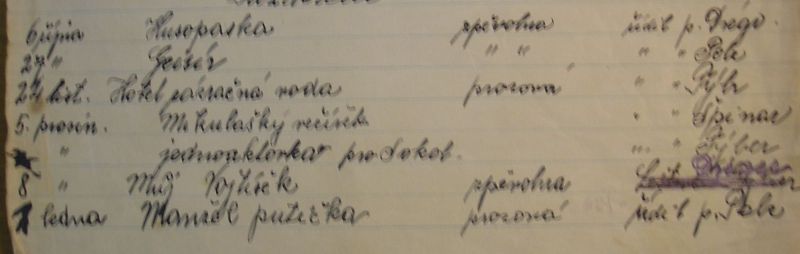 6 října Husopaska zpěvohra řídil p. Drégr.
27 " Gejzír " " " " Pelc
24 list. Hotel zázračná voda prozová " " Týbr
5. prosin. Mikulašký večírek " " Špinar
" jednoaktovka pro Sokol. " " Týber
8 " Můj Vojtíšek zpěvohra
1 ledna Manžel putička prozová řídil p. Pelc